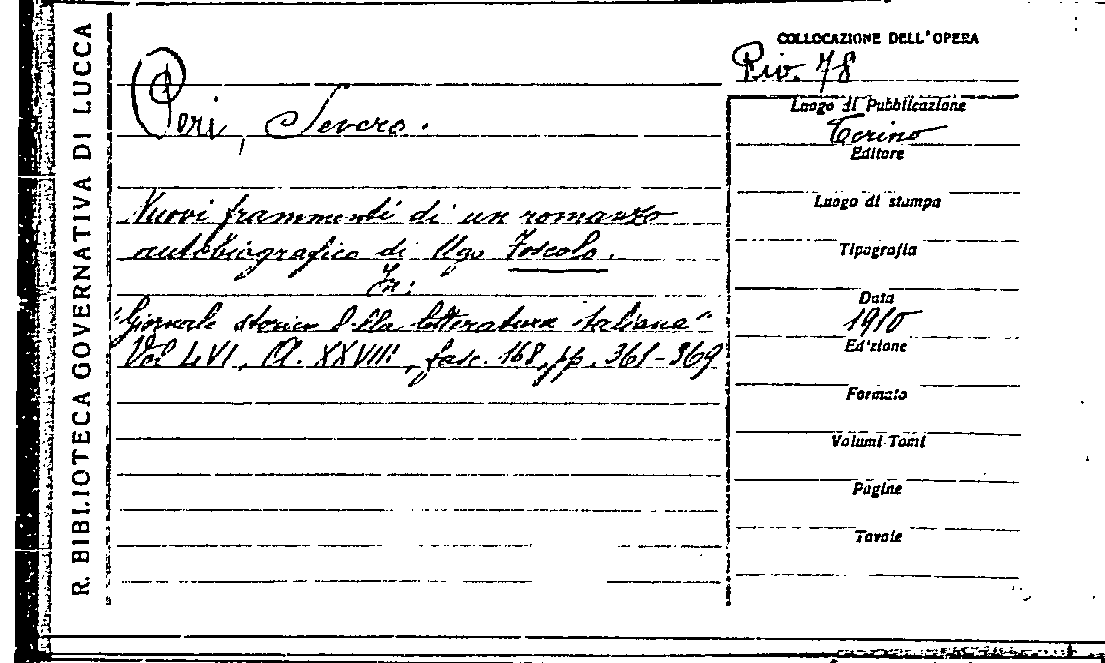 R. BIBLIOTECA GOVERNATIVA DI LUCCA
Peri, Severo.
Nuovi frammenti di un romanzo
autobiografico di Ugo Foscolo.
In:
"Giornale storico della letteratura italiana"
Vol LVI, A. XXVIII, fasc. 168, pp. 361-369
COLLOCAZIONE DELL'OPERA
Riv. 78
Luogo di Pubblicazione
Torino
Editore
Luogo di stampa
Tipografia
Data
1910
Edizione
Formato
Volumi-Tomi
Pagine
Tavole